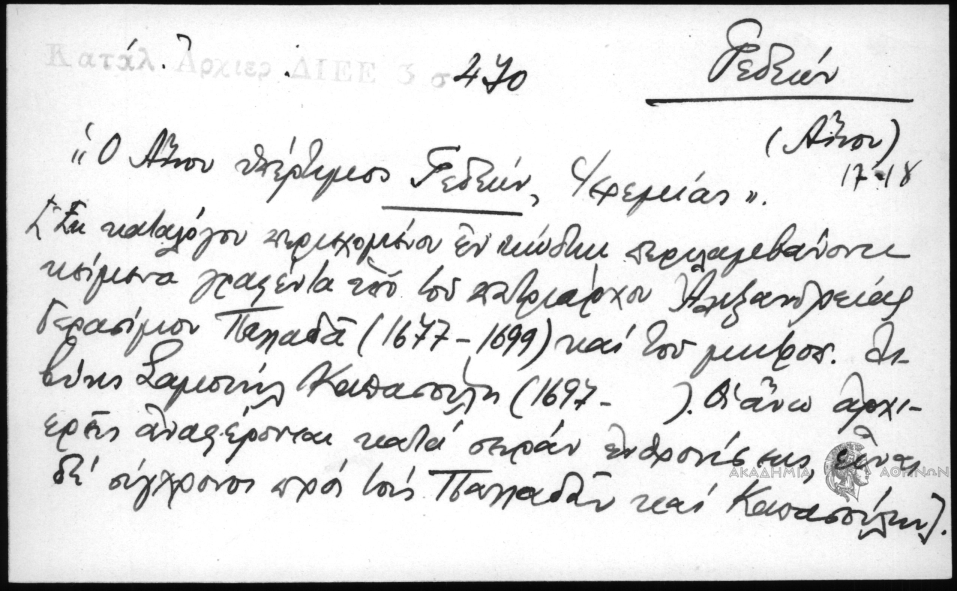 Κατάλ. Ἀρχιερ ΔΙΕΕ 3 σ 470
Γεδεών
(Αἴνου)
17-18
"Ὁ Αἴνου ὑπέρτιμος Γεδεών, Ἱερεμίας".
[Ἐκ καταλόγου περιεχομένου ἐν κώδικι περιλαμβάνοντι
κείμενα γραφέντα ὑπό τοῦ πατριάρχου Ἀλεξανδρείας
Γερασίμου Παλλαδᾶ (1677-1699) καί τοῦ μητροπ. Λι-
βύης Σαμουήλ Καπασούλη (1697-    ). Οἱ ἄνω ἀρχι-
ερεῖς ἀναφέρονται κατά σειράν ἐνθρονίσεως εἶναι
δέ σύγχρονοι πρός τούς Παλλαδᾶν καί Καπασούλην].
ΑΚΑΔΗΜΙΑ ΑΘΗΝΩΝ